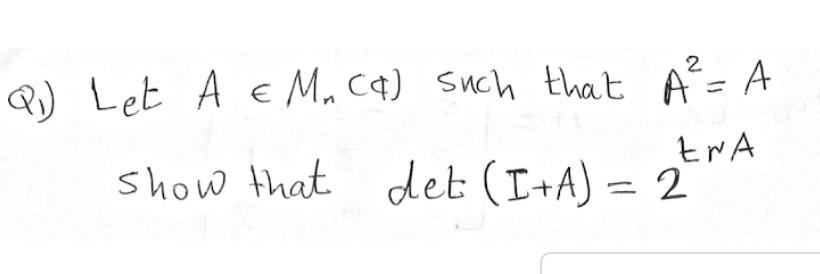 Q1) Let A ∈ Mn(ℂ) such that A² = A
show that det (I+A) = 2^trA